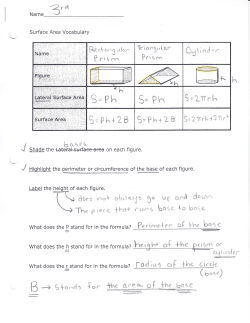 Name 3rd
Surface Area Vocabulary
Name Rectangular Prism Triangular Prism Cylinder
Figure h h h
Lateral Surface Area S=Ph S=Ph S=2πrh
Surface Area S=Ph+2B S=Ph+2B S=2πrh+2πr²
bases
√ Shade the Lateral surface area on each figure.
√ Highlight the perimeter or circumference of the base of each figure.
Label the height of each figure.
↳ does not always go up and down
↳ The piece that runs base to base
What does the P stand for in the formula? Perimeter of the base
What does the h stand for in the formula? height of the prism or
cylinder
What does the r stand for in the formula? radius of the circle
(base)
B → stands for the area of the base